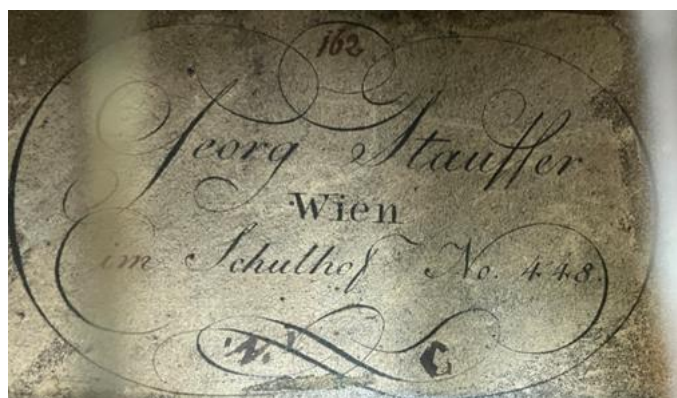 162
Georg Stauffer
Wien
im Schulhof No. 448.